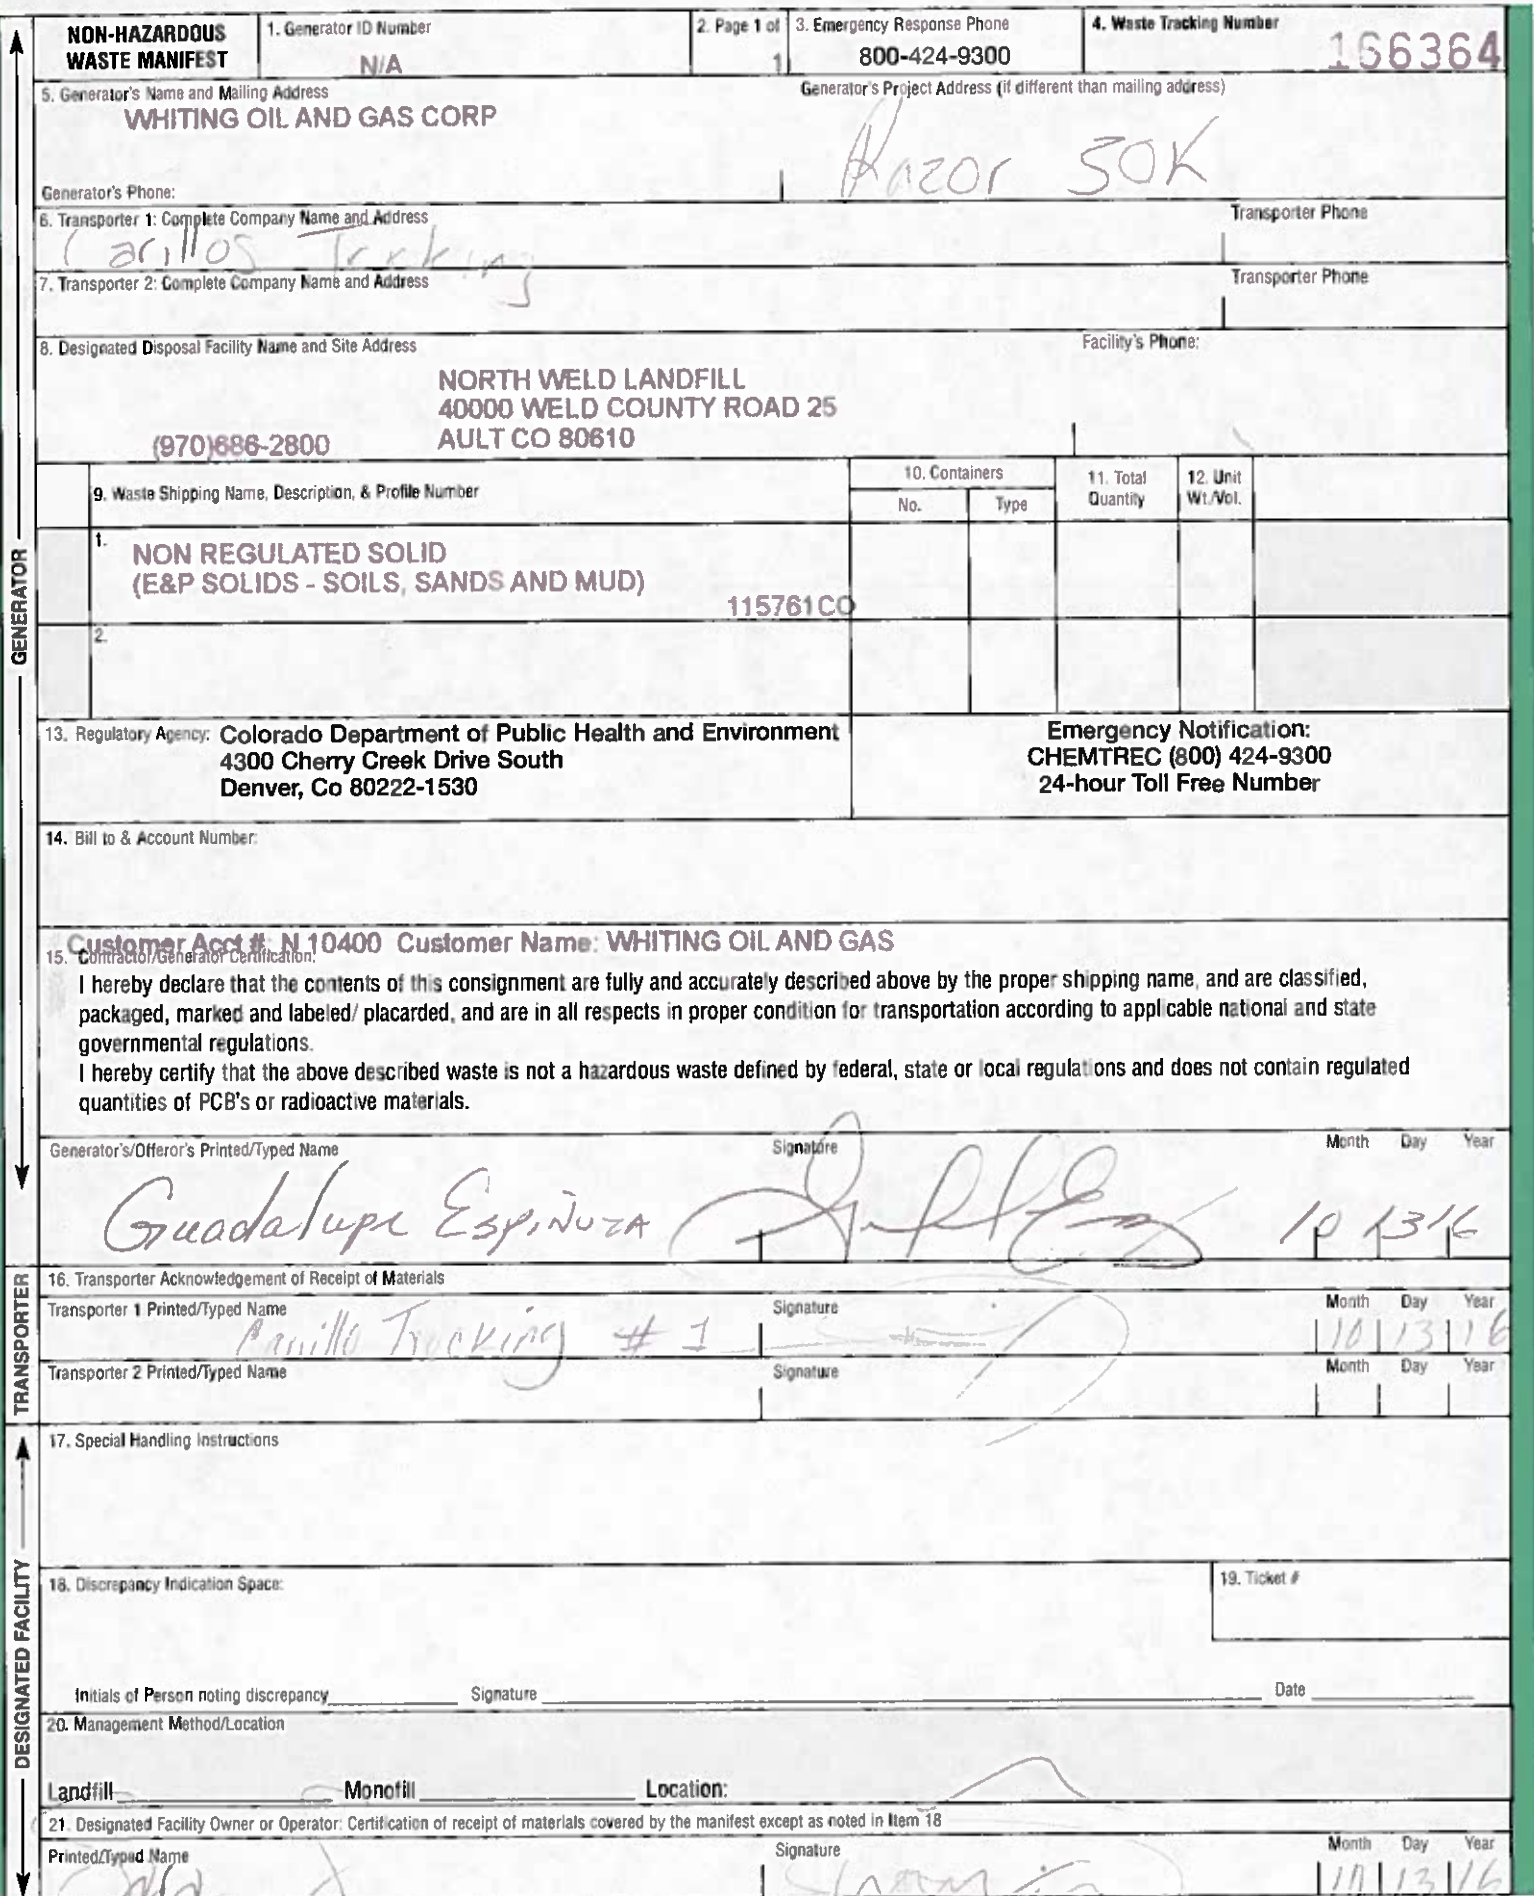 NON-HAZARDOUS
WASTE MANIFEST
1. Generator ID Number
N/A
2. Page 1 of
1
3. Emergency Response Phone
800-424-9300
4. Waste Tracking Number
166364
5. Generator's Name and Mailing Address
WHITING OIL AND GAS CORP
Generator's Project Address (if different than mailing address)
Razor 30K
Generator's Phone:
6. Transporter 1: Complete Company Name and Address
Carillos Trcking
Transporter Phone
7. Transporter 2: Complete Company Name and Address
Transporter Phone
8. Designated Disposal Facility Name and Site Address
Facility's Phone:
NORTH WELD LANDFILL
40000 WELD COUNTY ROAD 25
(970)686-2800 AULT CO 80610
9. Waste Shipping Name, Description, & Profile Number
10. Containers
No.
Type
11. Total
Quantity
12. Unit
Wt./Vol.
1.
NON REGULATED SOLID
(E&P SOLIDS - SOILS, SANDS AND MUD)
115761CO
2.
13. Regulatory Agency: Colorado Department of Public Health and Environment
4300 Cherry Creek Drive South
Denver, Co 80222-1530
Emergency Notification:
CHEMTREC (800) 424-9300
24-hour Toll Free Number
14. Bill to & Account Number:
Customer Acct #: N 10400 Customer Name: WHITING OIL AND GAS
15. Contractor/Generator Certification:
I hereby declare that the contents of this consignment are fully and accurately described above by the proper shipping name, and are classified,
packaged, marked and labeled/ placarded, and are in all respects in proper condition for transportation according to applicable national and state
governmental regulations.
I hereby certify that the above described waste is not a hazardous waste defined by federal, state or local regulations and does not contain regulated
quantities of PCB's or radioactive materials.
Generator's/Offeror's Printed/Typed Name
Signature
Month Day Year
Guadalupe Espinuza
10 13 16
16. Transporter Acknowledgement of Receipt of Materials
Transporter 1 Printed/Typed Name
Signature
Month Day Year
Carrillo Trucking # 1
10 13 16
Transporter 2 Printed/Typed Name
Signature
Month Day Year
17. Special Handling Instructions
18. Discrepancy Indication Space:
19. Ticket #
Initials of Person noting discrepancy
Signature
Date
20. Management Method/Location
Landfill
Monofill
Location:
21. Designated Facility Owner or Operator: Certification of receipt of materials covered by the manifest except as noted in Item 18
Printed/Typed Name
Signature
Month Day Year
10 13 16
GENERATOR
TRANSPORTER
DESIGNATED FACILITY